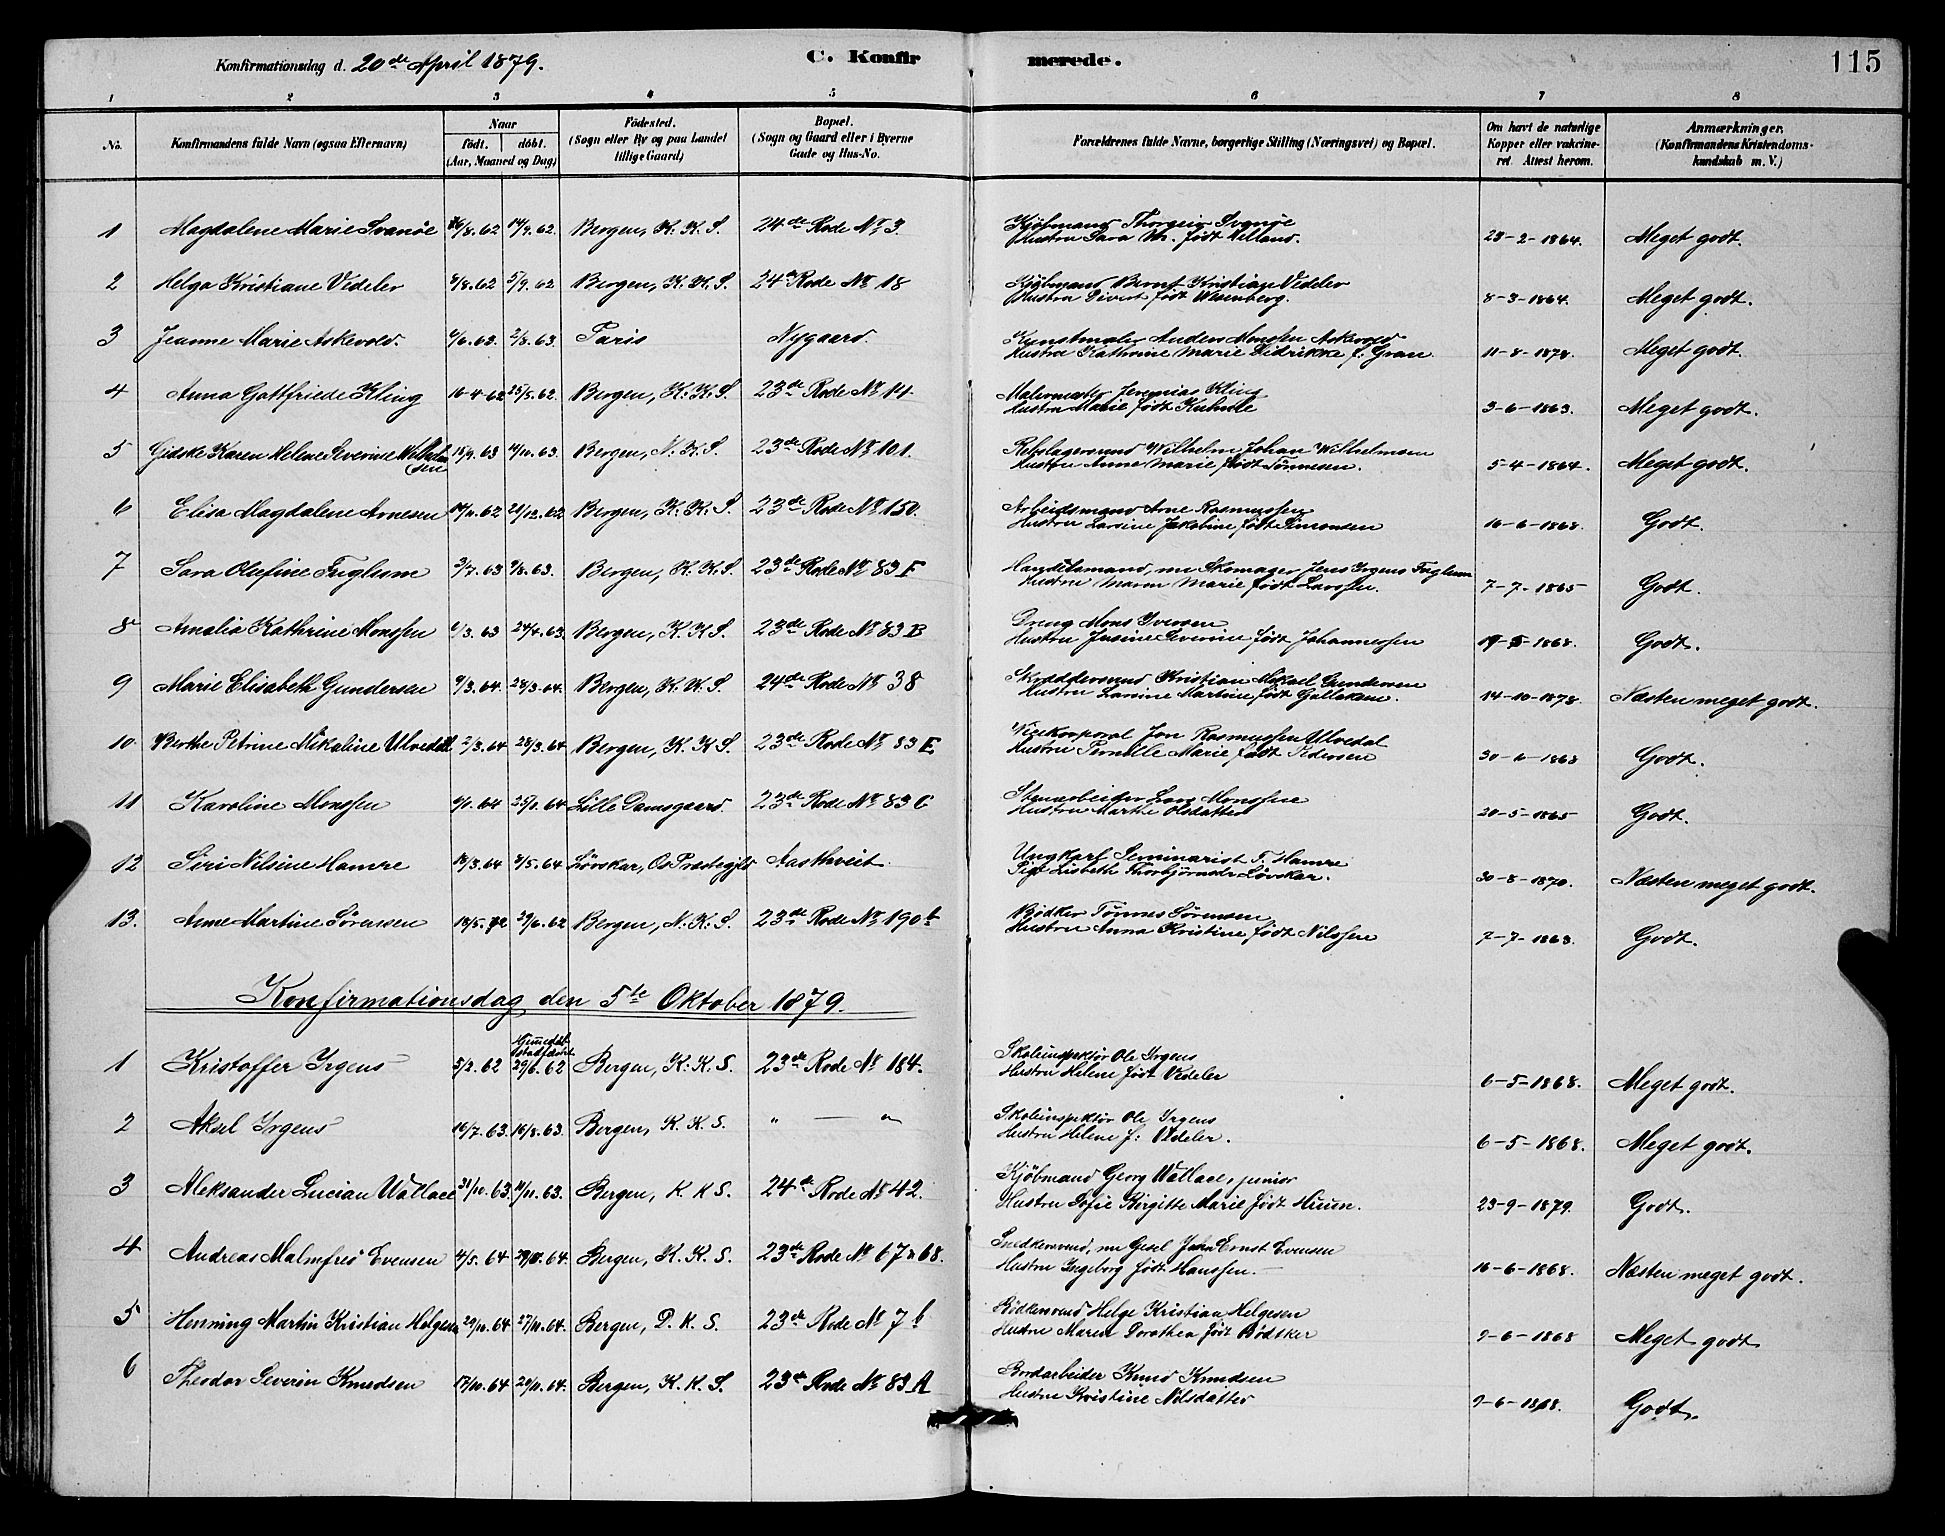 Konfirmationsdag d. 20de April 1879. C. Konfirmerede. 115
1 2 3 4 5 6 7 8
No. Konfirmandens fulde Navn (ogsaa Efternavn) Naar født. døbt. (Aar, Maaned og Dag) Fødested. (Sogn eller By og paa Landet tillige Gaard) Bopæl. (Sogn og Gaard eller i Byerne Gade og Hus-No. Forældrenes fulde Navne, borgerlige Stilling (Næringsvei) og Bopæl. Om havt de naturlige Kopper eller vakcineret. Attest herom. Anmærkninger. (Konfirmandens Kristendomskundskab m. V.)
1 Magdalene Marie Svanøe /8.62 14/9.62. Bergen, K. K. S. 24de Rode No 3. Kjøbmand Thorgeir Svanøe
Hustru Sara M. født Helland. 23-2-1864. Meget godt.
2 Helga Kristiane Vedeler 8/8.62 5/9.62 Bergen, K. K. S. 24de Rode No 18 Kjøbmand Bernt Kristian Vedeler
Hustru Sivert født Wesenberg. 8-3-1864. Meget godt.
3 Jeanne Marie Askevold. /6.63. 2/8.63. Paris Nygaard. Kunstmaler Anders Monsen Askevold
Hustru Kathrine Marie Didrikke f. Gran 11-8-1878. Meget godt.
4 Anna Gottfriede Kling 10-4-62 25/5.62. Bergen, K. K. S. 23de Rode No 14. Malermester Jeremias Kling
Hustru Marie født Kuhnle 3-6-1863. Meget godt.
5 Gidske Karen Helene Severine Wilhelmsen 15/9.63 /10.63. Bergen, N. K. S. 23de Rode No 101. Rebslagersvend Wilhelm Johan Wilhelmsen
Hustru Anne Marie født Tønnesen. 5-4-1864. Meget godt.
6 Elisa Magdalene Arnesen 14/11.62 21/12.62 Bergen, K. K. S. 23de Rode No 150. Arbeidsmand Arne Rasmussen
Hustru Lavine Jakobine født Simonsen 16-6-1868. Godt.
7 Sara Olufine Fuglum 3/7.63 9/8.63. Bergen, K. K. S. 23de Rode No 83 F Jens Irgens Fuglum
Hustru Maren Marie født Larssen. 7-7-1865 Godt.
8 Amalia Kathrine Monssen 6/3.63 24/4.63. Bergen, K. K. S. 23de Rode No 83 B Dreng Mons Iversen
Hustru Jensine Severine født Johannessen 19-5-1868. Godt.
9 Marie Elisabeth Gundersen 9/3.64. 28/3.64. Bergen, K. K. S. 24de Rode No 38 Skræddersvend Kristian Mikael Gundersen
Hustru Lavine Martine født 14-10-1878. Næsten meget godt.
10. Berthe Petrine Mikaline Ulvedal 2/3.64 28/3.64 Bergen, K. K. S. 23de Rode No 83 E. Vicekorporal Jon Rasmussen Ulvedal
Hustru Pernille Marie født Pedersen 30-6-1868 Godt.
11 Karoline Monssen 6/1.64 25/1.64 Lille Damsgaard. 23de Rode No 83 C Stenarbeider Lars Monssen
Hustru Marthe Olsdatter 20-5-1865 Godt.
12 Siri Nilsine Hamre 18/3.64 /5.64 Løvskar, Os Præstegjeld Aasthveit. Ungkarl Seminarist T. Hamre
Pige Lisbeth Thorbjørnsdr Løvskar. 30-8-1870. Næsten meget godt.
13. Anne Martine Sørensen 18/5.62 29/6.62 Bergen, N. K. S. 23de Rode No 190 b Bødker Tønnes Sørensen
Hustru Anna Kristine født Nilssen 7-7-1863. Godt.
Konfirmationsdag den 5te Oktober 1879.
1 Kristoffer Irgens 5/2.62 Hjemmedøbt stadfæstet 29/6.62 Bergen, K. K. S. 23de Rode No 184. Skoleinspektør Ole Irgens
Hustru Helene født Vedeler 6-5-1868. Meget godt.
2 Aksel Irgens 16/7.63. 16/8.63. Bergen, K. K. S. " — " Skoleinspektør Ole Irgens
Hustru Helene f: Vedeler. 6-5-1868. Meget godt.
3 Aleksander Lucian Wallace 31/10.63. /11.63. Bergen, K. K S. 24de Rode No 42. Kjøbmand Georg Wallace, junior
Hustru Sofie Birgitte Marie født 23-9-1879. Godt.
4 Andreas Malmfred Evensen 4/5.64 .64. Bergen, K. K. S. 23de Rode No 67 a 68. Snedkersvend, nu Gesel John Ernst Evensen
Hustru Ingeborg født Hanssen. 16-6-1868. Næsten meget godt.
5 Henning Martin Kristian Helgesen 29/10.64 27/11.64. Bergen, D. K. S. 23de Rode No 7 b Bødkersvend Helge Kristian Helgesen
Hustru Maren Dorothea født Bødtker 9-6-1868 Meget godt
6 Theodor Severin Knudsen 17/10.64 20/11.64. Bergen, K. K. S. 23de Rode No 83 A Bordarbeider Knud Knudsen
Hustru Kristine Nilsdatter 9-6-1868. Godt.